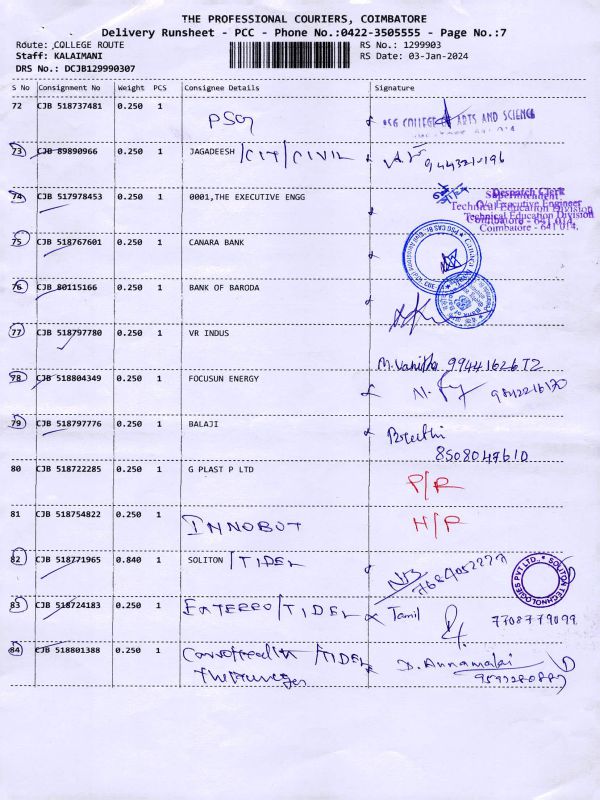 THE PROFESSIONAL COURIERS, COIMBATORE
Delivery Runsheet - PCC - Phone No.:0422-3505555 - Page No.:7
Route: COLLEGE ROUTE RS No.: 1299903
Staff: KALAIMANI RS Date: 03-Jan-2024
DRS No.: DCJB129990307
S No Consignment No Weight PCS Consignee Details Signature
72 CJB 518737481 0.250 1 PSG PSG COLLEGE OF ARTS AND SCIENCE
73 CJB 89890966 0.250 1 JAGADEESH /CIT/CIVIL
74 CJB 517978453 0.250 1 0001,THE EXECUTIVE ENGG
Despatch Clerk
Superintendent
O/o Executive Engineer
Technical Education Division
Technical Education Division
Coimbatore - 641 014.
Coimbatore - 641 014.
75 CJB 518767601 0.250 1 CANARA BANK
76 CJB 80115166 0.250 1 BANK OF BARODA
77 CJB 518797780 0.250 1 VR INDUS
M. Vanitha
78 CJB 518804349 0.250 1 FOCUSUN ENERGY
79 CJB 518797776 0.250 1 BALAJI Preethi
8508047610
80 CJB 518722285 0.250 1 G PLAST P LTD P/R
81 CJB 518754822 0.250 1 INNOBOT N/P
82 CJB 518771965 0.840 1 SOLITON /TIDEL SOLITON TECHNOLOGIES PVT LTD.
83 CJB 518724183 0.250 1 /TIDEL Tamil 7708779099
84 CJB 518801388 0.250 1 /TIDEL D. Annamalai